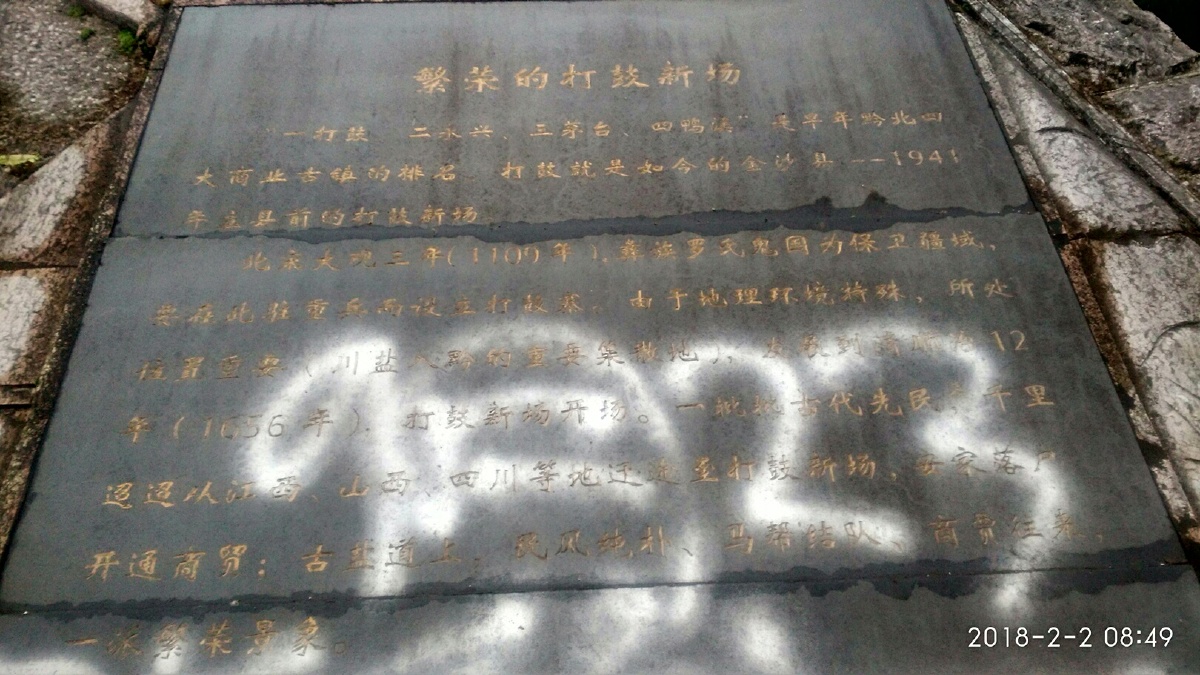 繁荣的打鼓新场
“一打鼓 二永兴、三茅台、四鸭溪”是早年黔北四
大商业古镇的排名。打鼓就是如今的金沙县--1941
年立县前的打鼓新场
北宋大观三年(1109年),彝族罗氏鬼国为保卫疆域,
要在此驻重兵而设立打鼓寨。由于地理环境特殊,所处
位置重要(川盐入黔的重要集散地),发展到清顺治12
年(1656年),打鼓新场开场。一批批古代先民,千里
迢迢从江西、山西、四川等地迁徙至打鼓新场,安家落户
开通商贸;古盐道上,民风纯朴、马帮结队、商贾往来,
一派繁荣景象。
2018-2-2 08:49